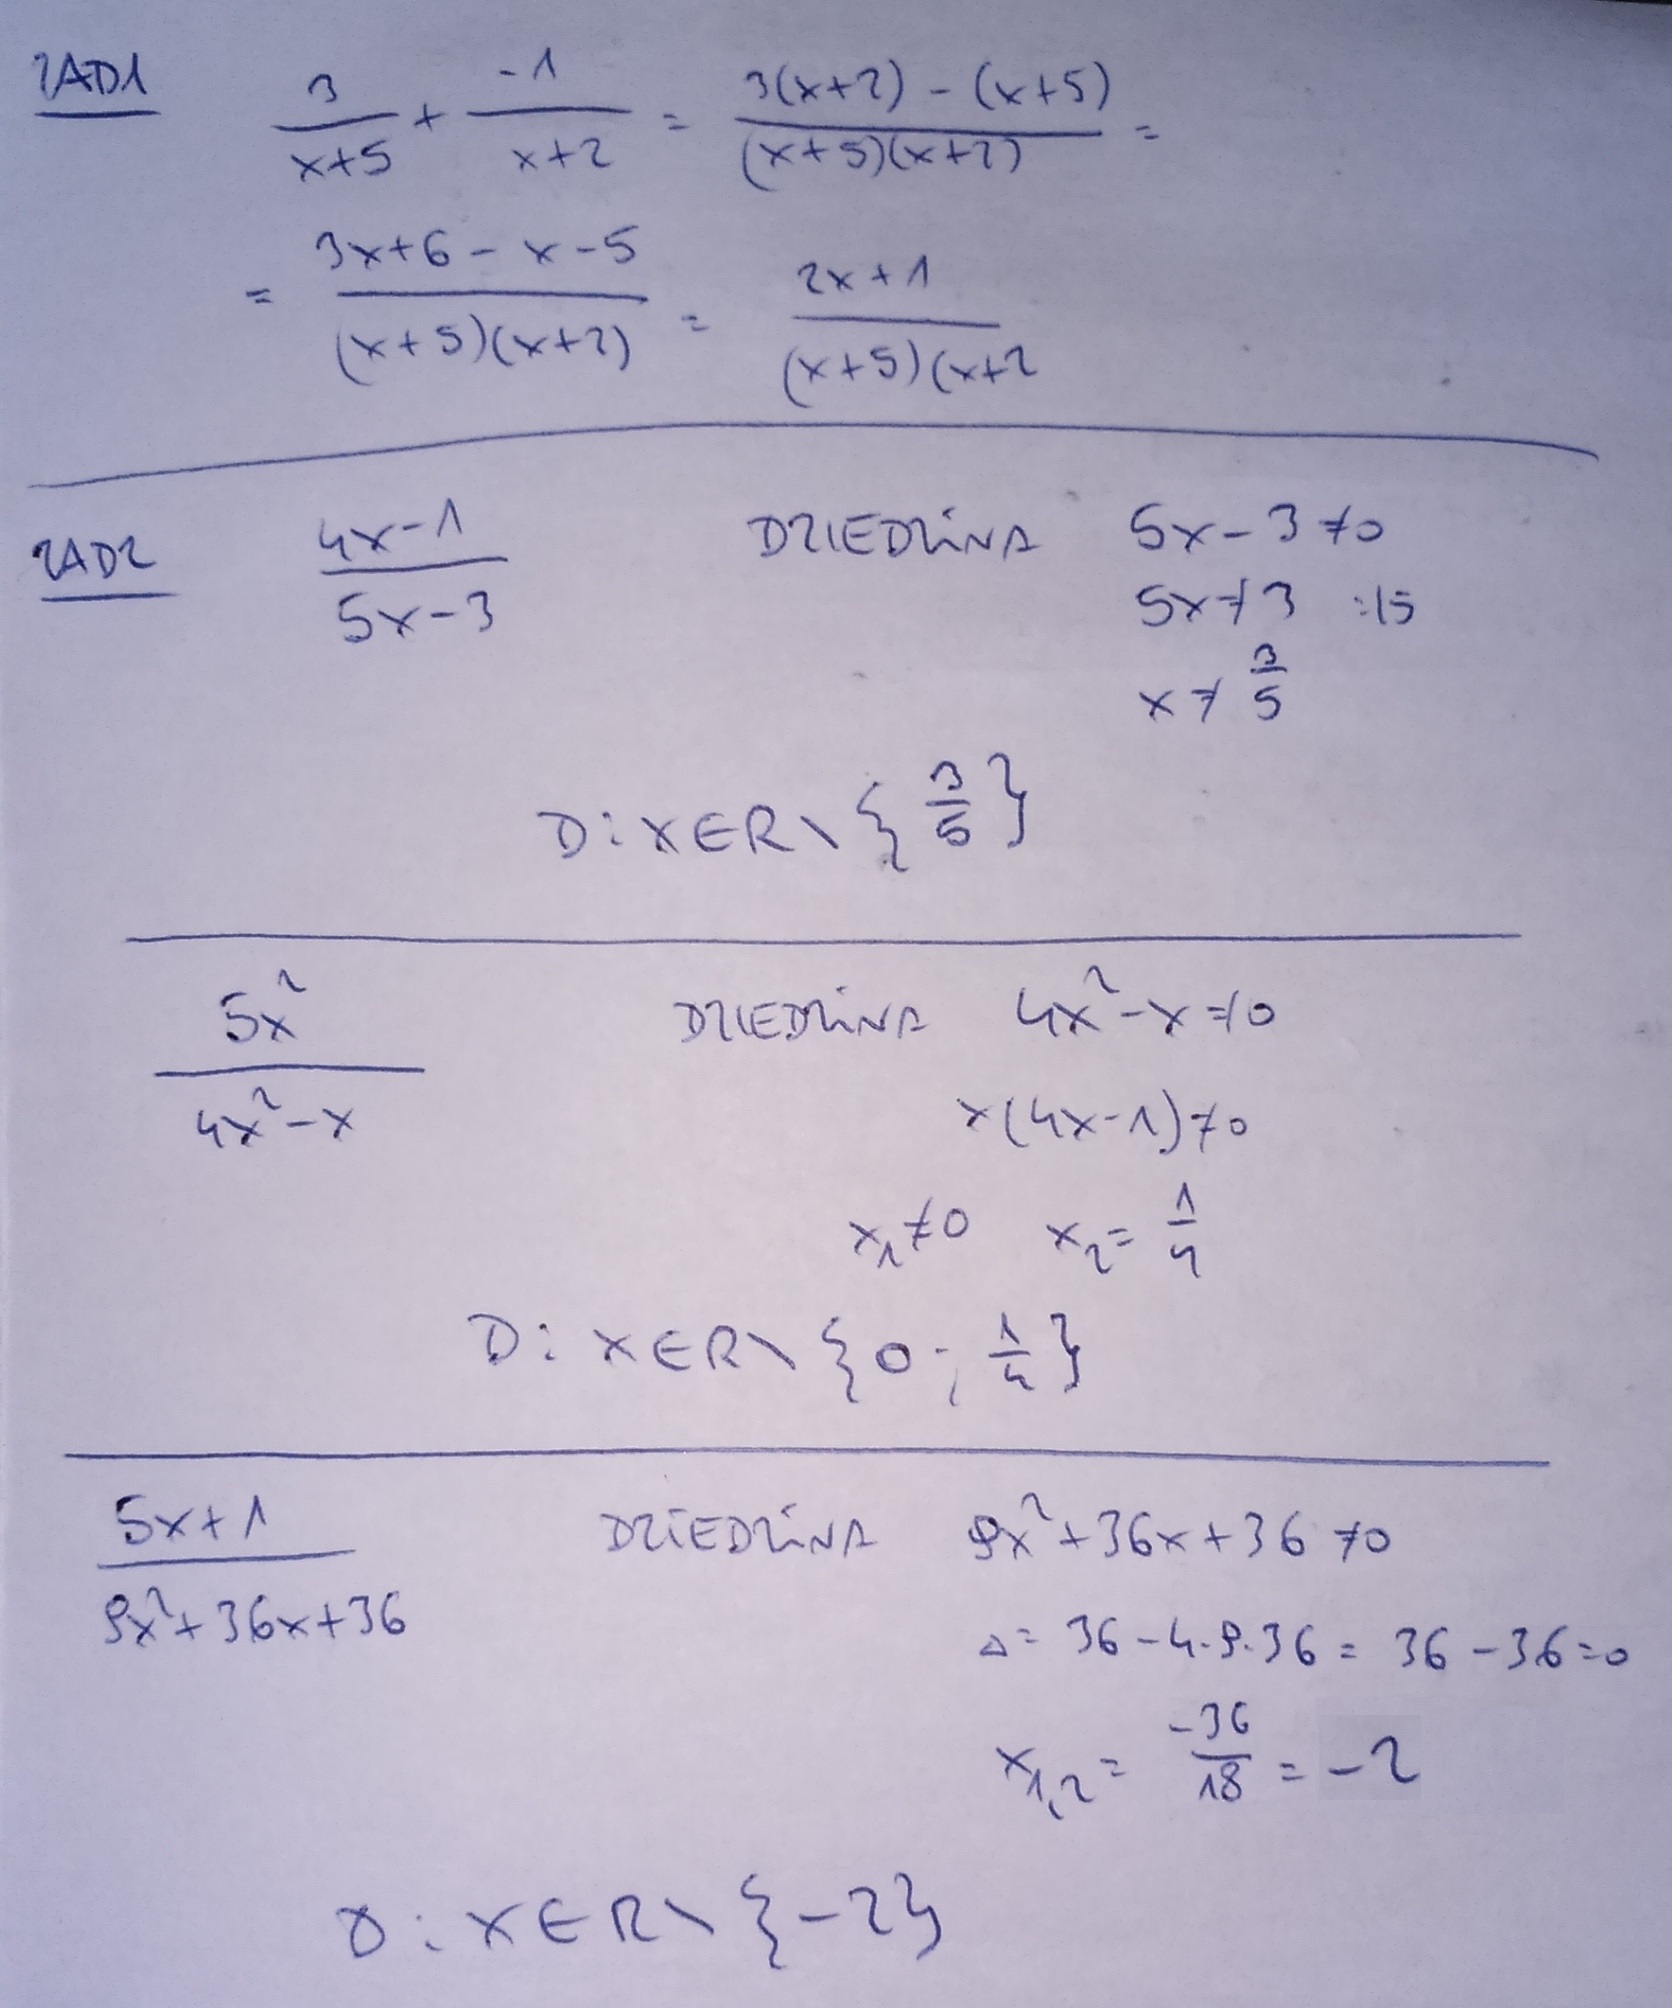 ZAD1
3/(x+5) + -1/(x+2) = (3(x+2) - (x+5))/((x+5)(x+2)) =
= (3x+6-x-5)/((x+5)(x+2)) = (2x+1)/((x+5)(x+2
ZAD2 (4x-1)/(5x-3) DZIEDZINA 5x-3≠0
5x≠3 :15
x≠3/5
D: x∈R \ {3/5}
5x²/(4x²-x) DZIEDZINA 4x²-x≠0
x(4x-1)≠0
x₁≠0 x₂=1/4
D: x∈R \ {0; 1/4}
(5x+1)/(9x²+36x+36) DZIEDZINA 9x²+36x+36≠0
Δ= 36-4·9·36 = 36-36=0
x₁,₂ = -36/18 = -2
D: x∈R \ {-2}